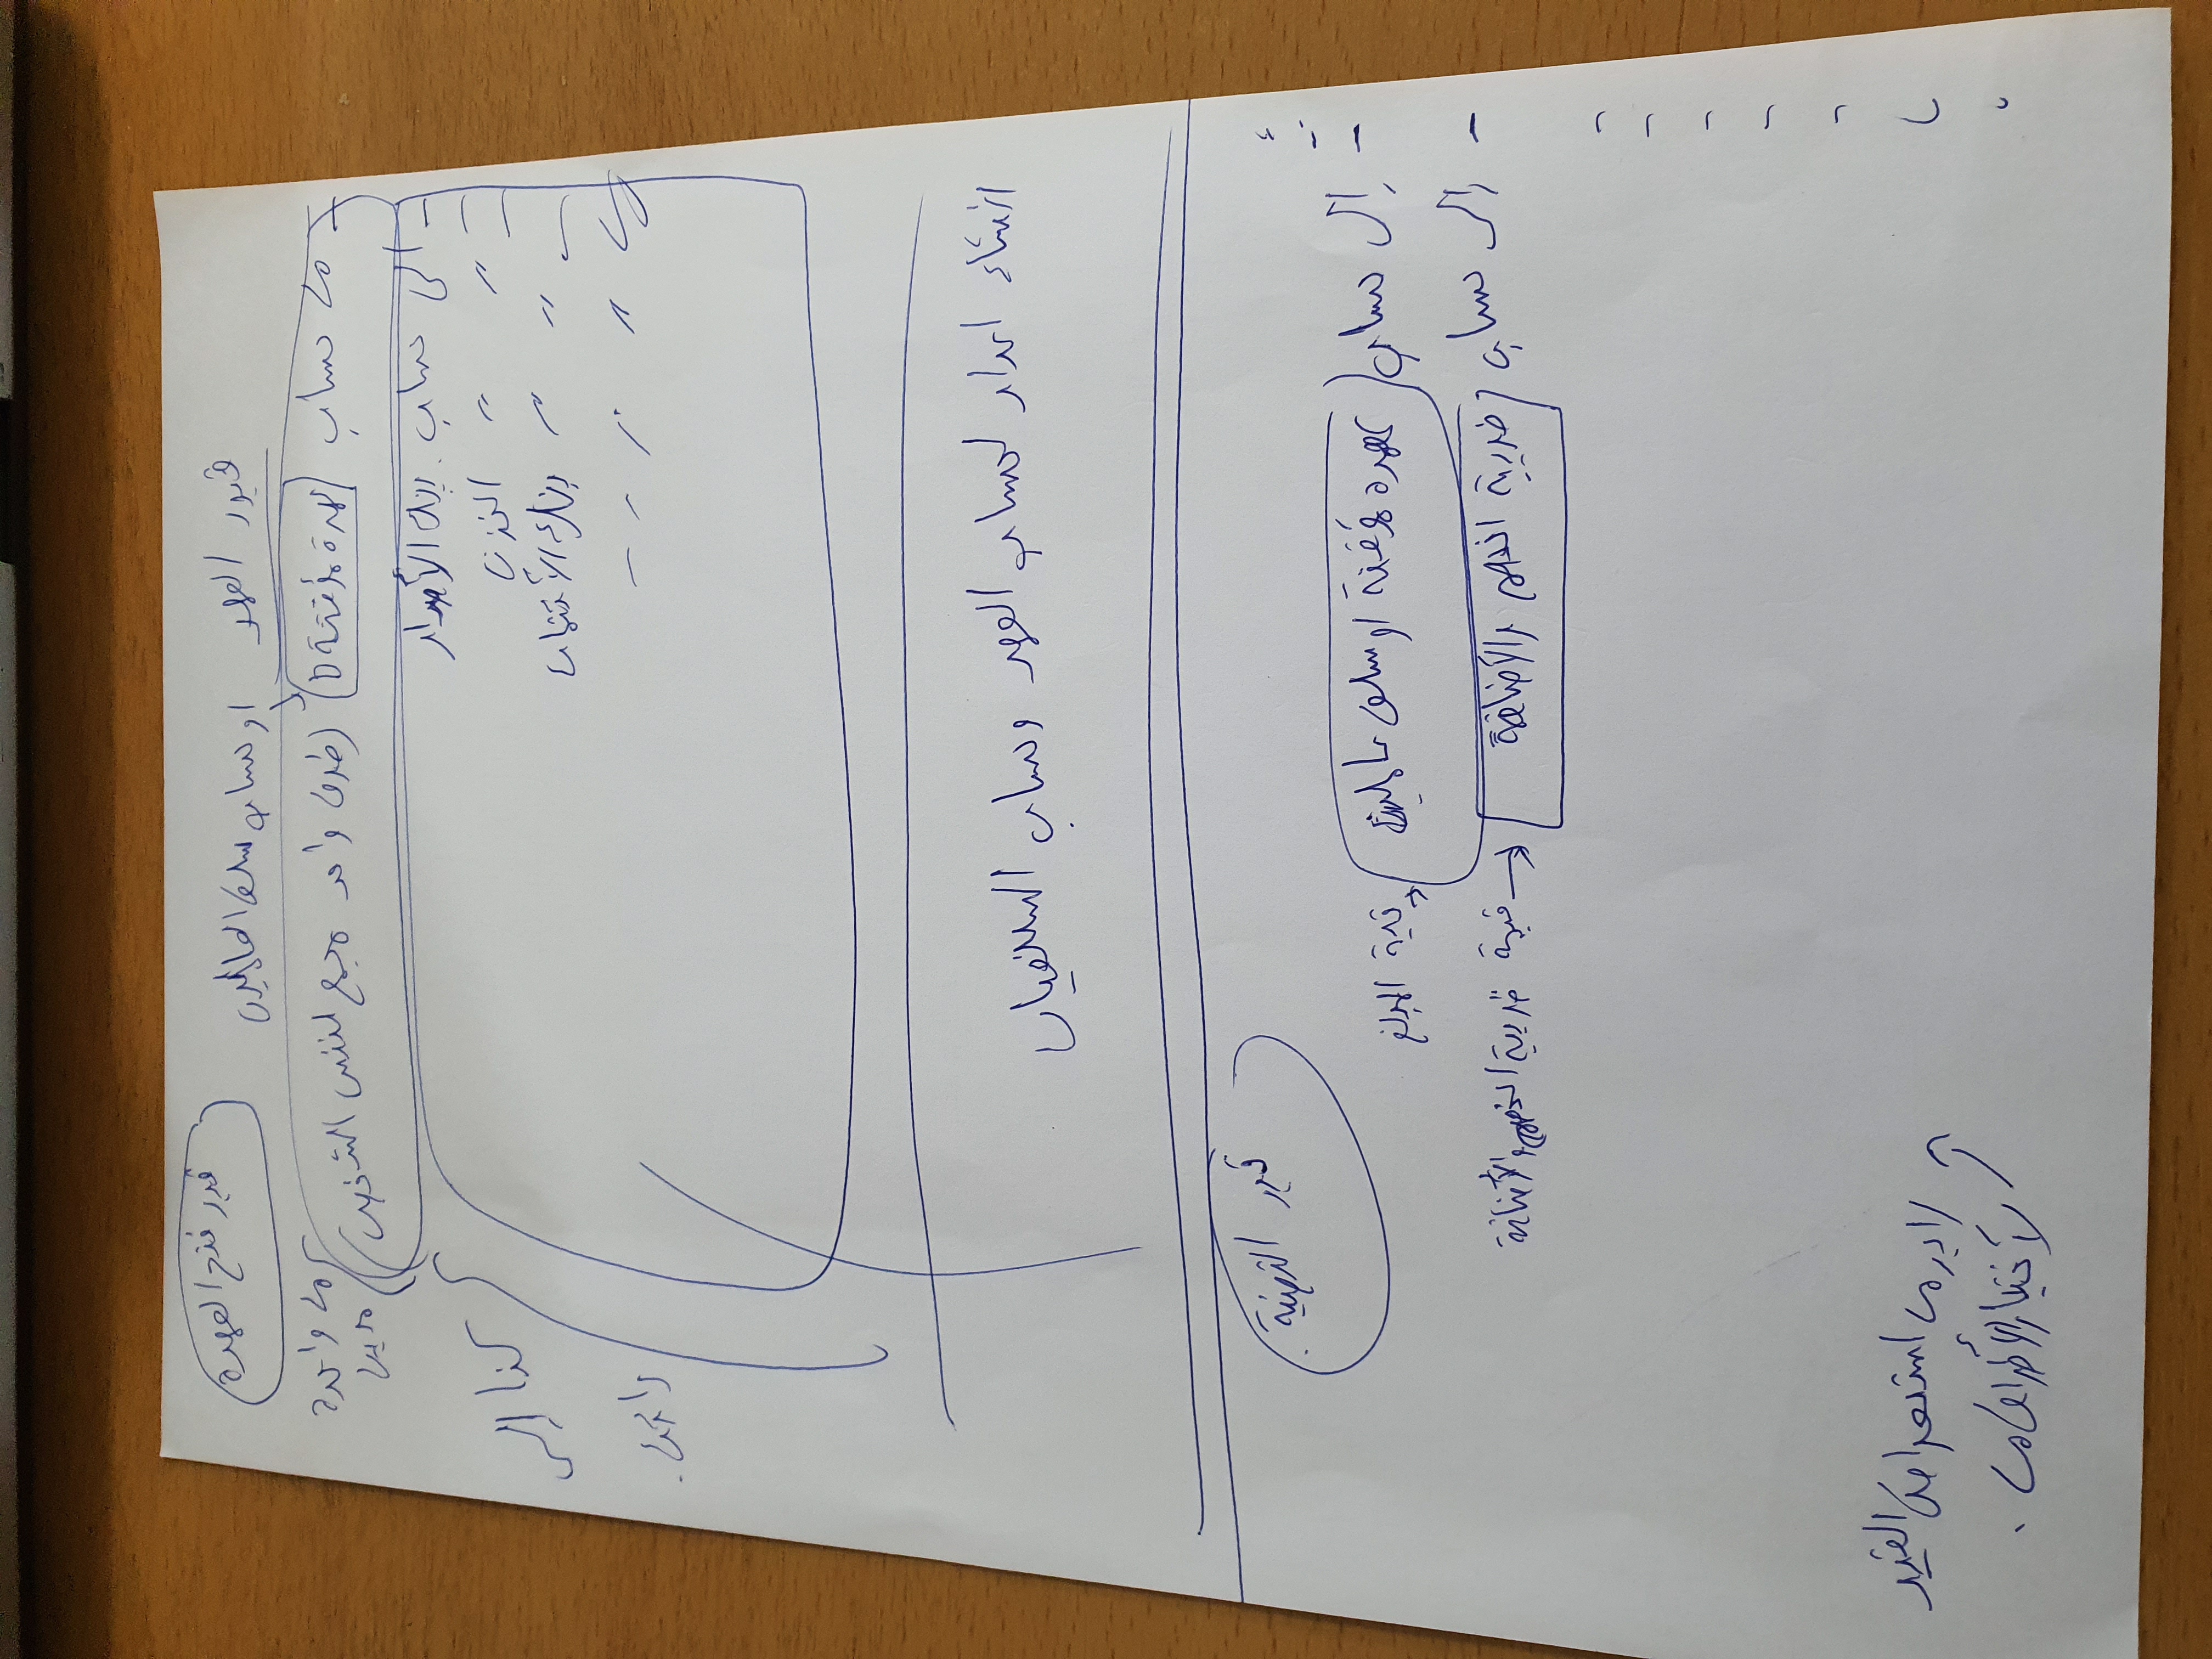 قيود العهد او حساب سلف العاملين
قيد فتح العهدة
من حساب عهدة مؤقتة (طرف واحد مجمع لنفس الشخص)
من واحدة
مدين
الى حساب بنك الأصدار
〃 〃 الخزن
〃 〃 بنك الأئتمان
〃
كذا إلى
دائن.
انشاء اعداد لحساب العهد وحساب السلفيات
قيد التصفية
إلى حساب عهده مؤقتة او سلف عاملين
قيمة المبلغ
إلى حساب ضريبة الخصم والأضافة
قيمة ضريبة الخصم والأضافة
لابد من استعراض القيد
لأختيار الأطراف من.